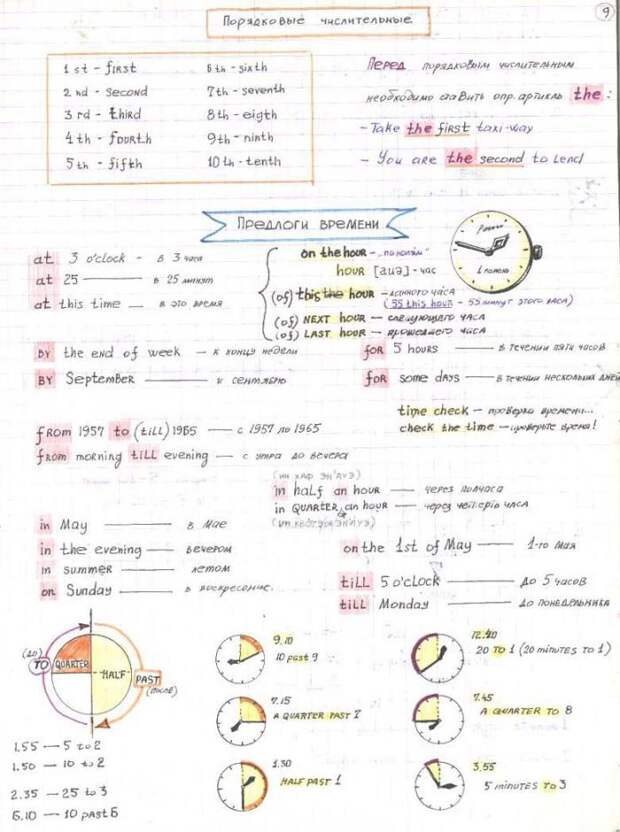 9
Порядковые числительные
1 st - first
2 nd - second
3 rd - third
4 th - fourth
5 th - fifth
6 th - sixth
7 th - seventh
8 th - eigth
9 th - ninth
10 th - tenth
Перед порядковым числительным
необходимо ставить опр. артикль the:
- Take the first taxi-way
- You are the second to land
Предлоги времени
at 3 o'clock - в 3 часа
at 25 — в 25 минут
at this time — в это время
on the hour -
hour [auə] - час
(of) this the hour - данного часа
(55 this hour - 55 минут этого часа)
(of) NEXT hour - следующего часа
(of) LAST hour - прошедшего часа
Ракета
1 Москва
BY the end of week - к концу недели
BY September — к сентябрю
for 5 hours — в течении пяти часов
for some days — в течении нескольких дней
time check - проверка времени...
check the time - проверьте время!
from 1957 to (till) 1965 — с 1957 по 1965
from morning till evening — с утра до вечера
(ин хаф эн'ауэ)
in half an hour — через полчаса
in QUARTER of an hour — через четверть часа
in May — в Мае
in the evening — вечером
in summer — летом
on Sunday — в воскресение.
on the 1st of May — 1-го Мая
till 5 o'clock — до 5 часов
till Monday — до понедельника
(до)
TO
QUARTER
HALF
PAST
(после)
1.55 — 5 to 2
1.50 — 10 to 2
2.35 — 25 to 3
6.10 — 10 past 6
9.10
10 past 9
7.15
A QUARTER PAST 7
1.30
HALF PAST 1
12.40
20 TO 1 (20 minutes to 1)
7.45
A QUARTER TO 8
3.55
5 minutes to 3